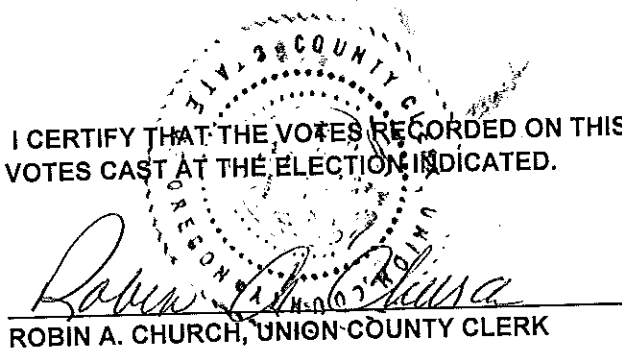 STATE OF OREGON COUNTY CLERK UNION COUNTY
I CERTIFY THAT THE VOTES RECORDED ON THIS
VOTES CAST AT THE ELECTION INDICATED.
Robin A. Church
ROBIN A. CHURCH, UNION COUNTY CLERK